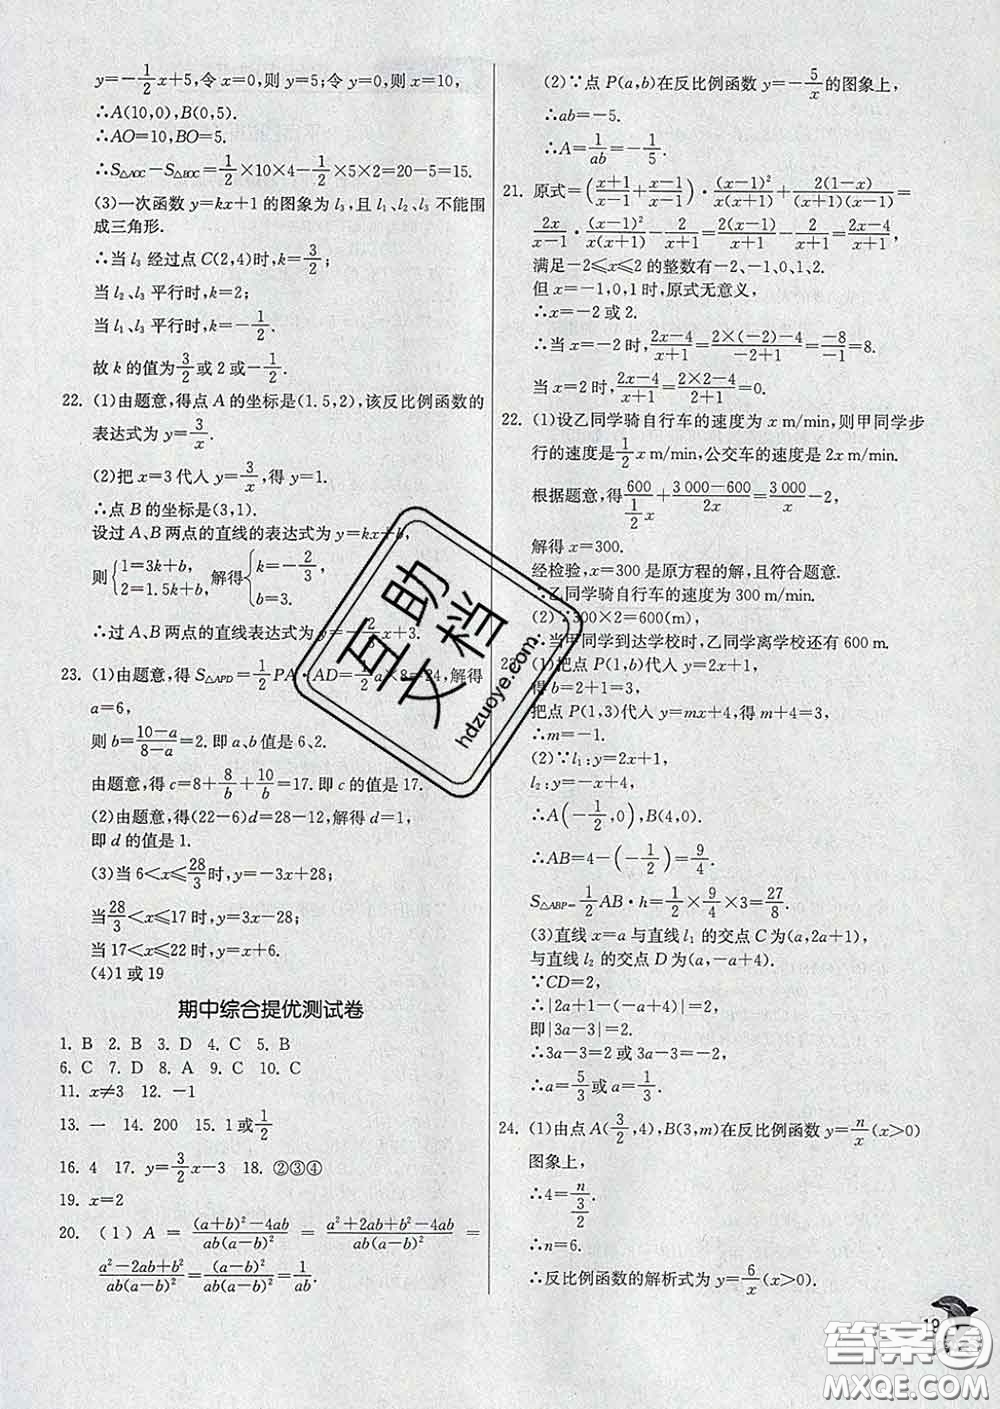 y=-1/2x+5,令 x=0,则 y=5;令 y=0,则 x=10,
∴A(10,0),B(0,5).
∴AO=10,BO=5.
∴S△AOC-S△BOC=1/2×10×4-1/2×5×2=20-5=15.
(3)一次函数 y=kx+1 的图象为 l₃,且 l₁、l₂、l₃ 不能围
成三角形.
∴当 l₃ 经过点 C(2,4)时,k=3/2;
当 l₂、l₃ 平行时,k=2;
当 l₁、l₃ 平行时,k=-1/2.
故 k 的值为3/2或 2 或-1/2.
22. (1)由题意,得点 A 的坐标是(1.5,2),该反比例函数的
表达式为 y=3/x.
(2)把 x=3 代入 y=3/x,得 y=1.
∴点 B 的坐标是(3,1).
设过 A、B 两点的直线的表达式为 y=kx+b,
则{1=3k+b, 2=1.5k+b, 解得{k=-2/3, b=3.
∴过 A、B 两点的直线表达式为 y=-2/3x+3.
23. (1)由题意,得 S△APD=1/2PA·AD=1/2a×8=24,解得
a=6,
则 b=(10-a)/(8-a)=2. 即 a、b 值是 6、2.
由题意,得 c=8+8/b+10/b=17. 即 c 的值是 17.
(2)由题意,得(22-6)d=28-12,解得 d=1,
即 d 的值是 1.
(3)当 6<x≤28/3时,y=-3x+28;
当28/3<x≤17 时,y=3x-28;
当 17<x≤22 时,y=x+6.
(4)1 或 19
期中综合提优测试卷
1. B 2. B 3. D 4. C 5. B
6. C 7. D 8. A 9. C 10. C
11. x≠3 12. -1
13. 一 14. 200 15. 1 或1/2
16. 4 17. y=3/2x-3 18. ②③④
19. x=2
20. (1) A = ((a+b)²-4ab)/(ab(a-b)²) = (a²+2ab+b²-4ab)/(ab(a-b)²) =
(a²-2ab+b²)/(ab(a-b)²)=(a-b)²/(ab(a-b)²)=1/ab.
(2)∵点 P(a,b)在反比例函数 y=-5/x的图象上,
∴ab=-5.
∴A=1/ab=-1/5.
21. 原式=((x+1)/(x-1)+(x-1)/(x-1))·(x-1)²/(x(x+1))+2(1-x)/((x+1)(x-1))=
2x/(x-1)·(x-1)²/(x(x+1))-2/(x+1)=2(x-1)/(x+1)-2/(x+1)=(2x-4)/(x+1),
满足-2≤x≤2 的整数有-2、-1、0、1、2.
但 x=-1,0,1 时,原式无意义,
∴x=-2 或 2.
∴当 x=-2 时,(2x-4)/(x+1)=(2×(-2)-4)/(-2+1)=-8/-1=8.
当 x=2 时,(2x-4)/(x+1)=(2×2-4)/(2+1)=0.
22. (1)设乙同学骑自行车的速度为 x m/min,则甲同学步
行的速度是1/2x m/min,公交车的速度是 2x m/min.
根据题意,得600/(1/2x)+(3 000-600)/2x=3 000/x-2,
解得 x=300.
经检验,x=300 是原方程的解,且符合题意.
∴乙同学骑自行车的速度为 300 m/min.
(2)∵300×2=600(m)
∴当甲同学到达学校时,乙同学离学校还有 600 m.
(1)把点 P(1,b)代入 y=2x+1,
得 b=2+1=3,
把点 P(1,3)代入 y=mx+4,得 m+4=3,
∴m=-1.
(2)∵l₁:y=2x+1,
l₂:y=-x+4,
∴A(-1/2,0),B(4,0).
∴AB=4-(-1/2)=9/4.
S△ABP=1/2AB·h=1/2×9/4×3=27/8.
(3)直线 x=a 与直线 l₁ 的交点 C 为(a,2a+1),
与直线 l₂ 的交点 D 为(a,-a+4).
∵CD=2,
∴|2a+1-(-a+4)|=2,
即|3a-3|=2.
∴3a-3=2 或 3a-3=-2,
∴a=5/3或 a=1/3.
24. (1)由点 A(3/2,4),B(3,m)在反比例函数 y=n/x(x>0)
图象上,
∴4=n/(3/2).
∴n=6.
∴反比例函数的解析式为 y=6/x(x>0).
19
互助文档
hdzuoye.com
答案圈
MXQE.COM